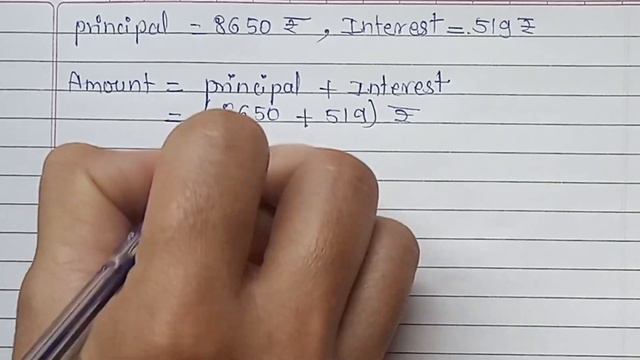 principal = 8650 ₹, Interest = 519 ₹
Amount = principal + Interest
= (8650 + 519) ₹